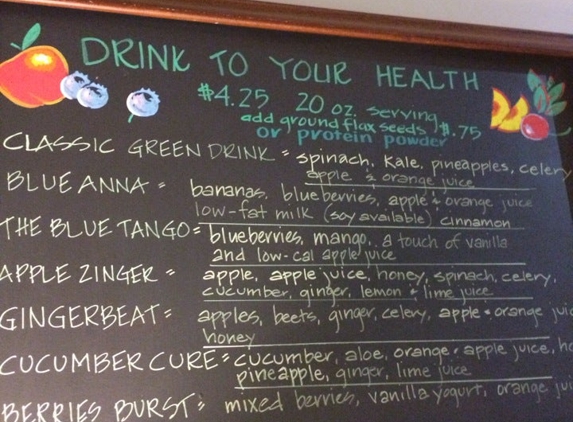 DRINK TO YOUR HEALTH
$4.25 20 oz. serving
add ground flax seeds $.75
or protein powder
CLASSIC GREEN DRINK = spinach, kale, pineapples, celery
apple & orange juice
BLUE ANNA = bananas, blueberries, apple & orange juice
low-fat milk (soy available) cinnamon
THE BLUE TANGO = blueberries, mango, a touch of vanilla
and low-cal apple juice
APPLE ZINGER = apple, apple juice, honey, spinach, celery,
cucumber, ginger, lemon & lime juice
GINGERBEAT = apples, beets, ginger, celery, apple & orange juic
honey
CUCUMBER CURE = cucumber, aloe, orange & apple juice, ho
pineapple, ginger, lime juice
BERRIES BURST = mixed berries, vanilla yogurt, orange jui